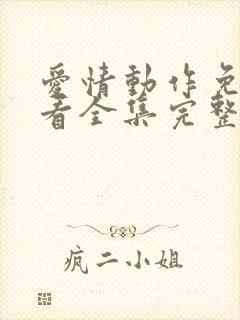 愛情動作免
看全集完整
疯二小姐